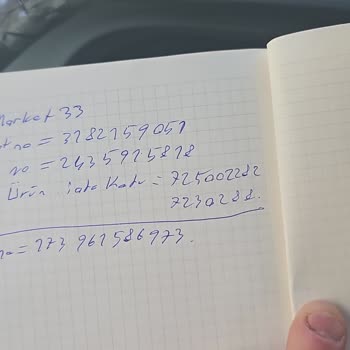 Market 33
no = 3182159051
no = 2435915818
Ürün iade Kodu = 725002282
7230288.
no = 173 961586973.